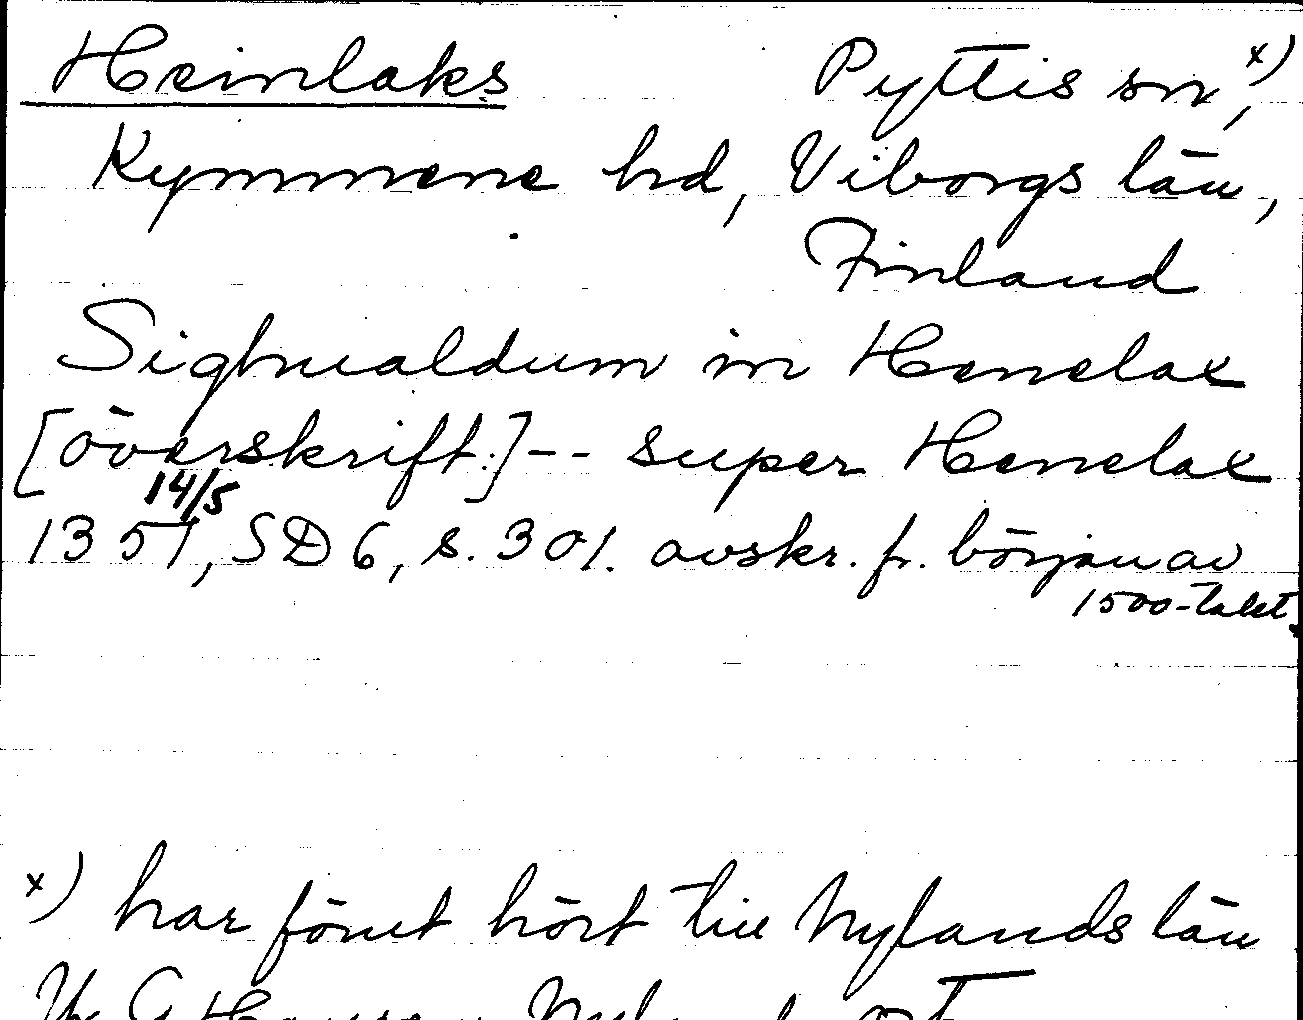 Heinlaks Pyttis sn x),
Kymmene hd, Viborgs län,
Finland
Sighualdum in Henelax
[överskrift.]-- super Henelax
14/5
1357, SD 6, s. 301. avskr. fr. början av
1500-talet.
x) har förut hört till Nylands län